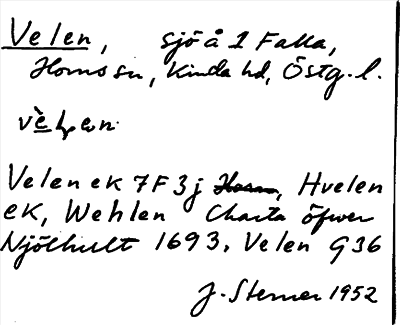 Velen, sjö å 1 Falla,
Horns sn, Kinda hd, Östg. l.
Velen ek 7F3j Horn, Hvelen
ek, Wehlen Charta öfwer
Njölhult 1693. Velen G36
J. Sterner 1952